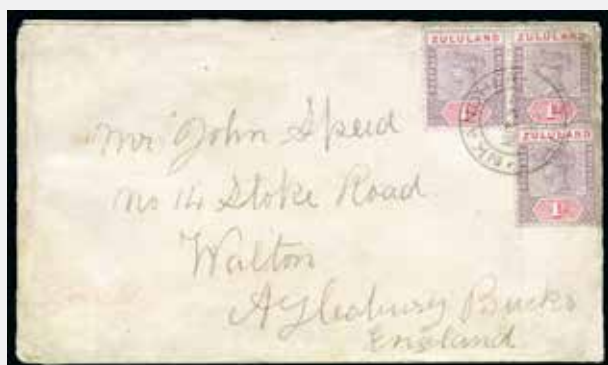 ZULULAND ZULULAND
1d
ZULULAND
Mr John Speed
No 14 Stoke Road
Walton
Aylesbury Bucks
England